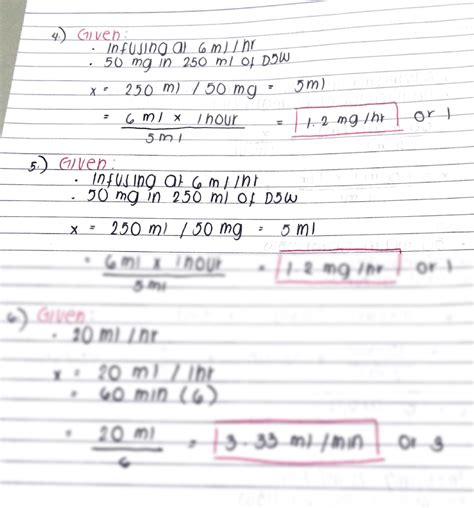 4.) Given:
· Infusing at 6 ml/hr
· 50 mg in 250 ml of D5W
x = 250 ml / 50 mg = 5ml
= 6 ml x 1 hour = 1.2 mg/hr or 1
5 ml
5.) Given:
· Infusing at 6 ml/hr
· 50 mg in 250 ml of D5W
x = 250 ml / 50 mg = 5 ml
= 6 ml x 1 hour = 1.2 mg/hr or 1
5 ml
6.) Given:
· 20 ml/hr
x = 20 ml / 1hr
= 60 min (6)
= 20 ml = 3.33 ml/min or 3
6